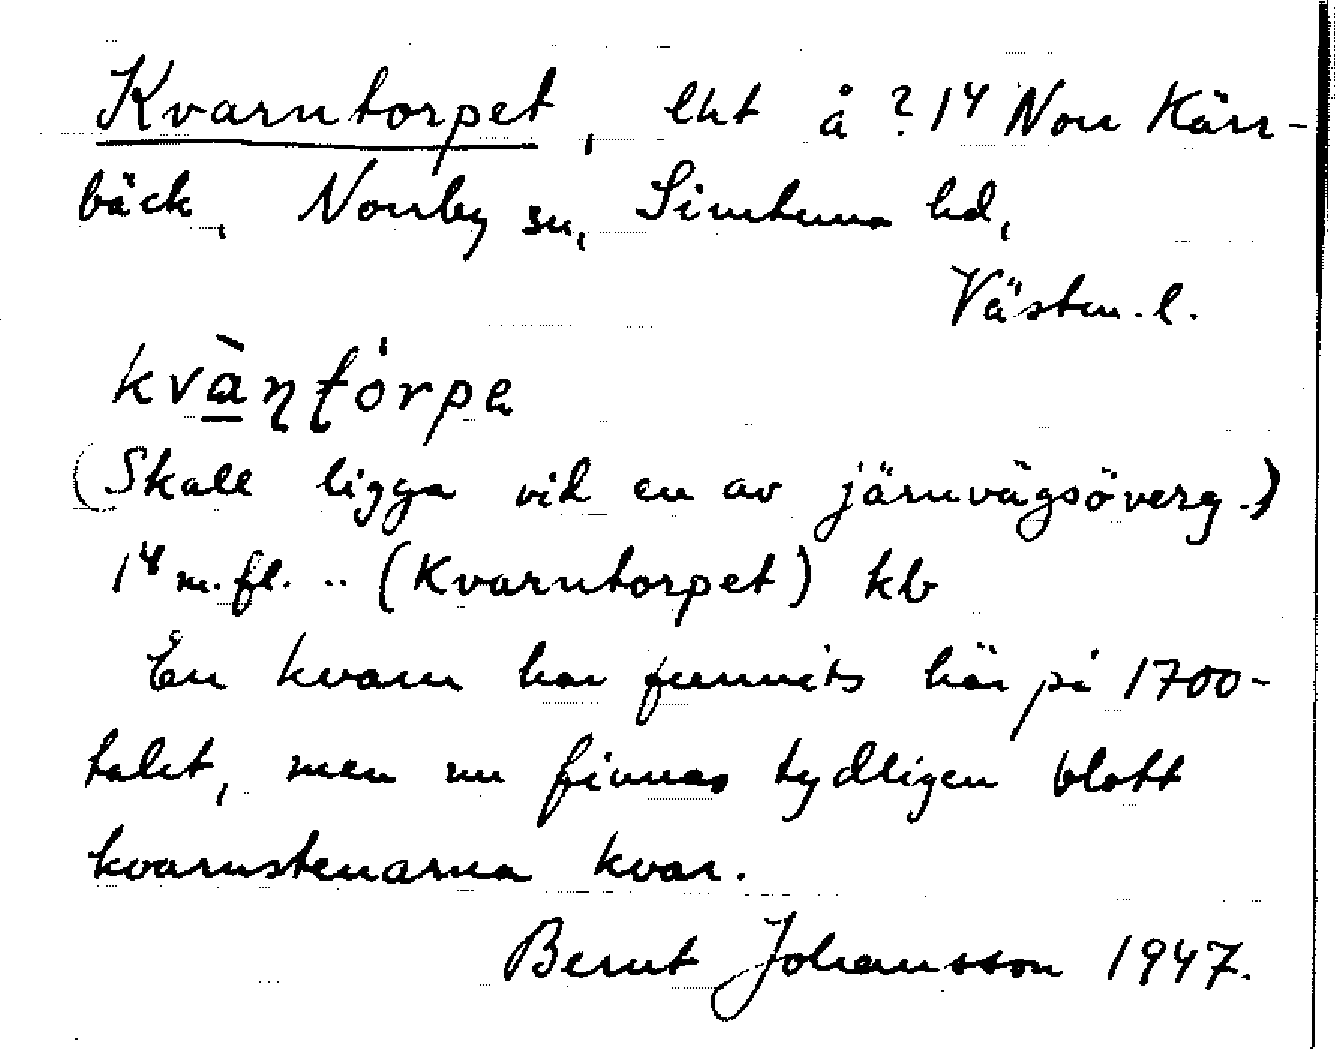 Kvarntorpet, lht å ? 1⁴ Norr Kärr-
bäck, Norrby sn, Simtuna hd,
Västm. l.
kvàṇʈórpe
(Skall ligga vid en av järnvägsöverg.)
1⁴ m. fl. .. (Kvarntorpet) kb
En kvarn har funnits här på 1700-
talet, men nu finnas tydligen blott
kvarnstenarna kvar.
Bernt Johansson 1947.